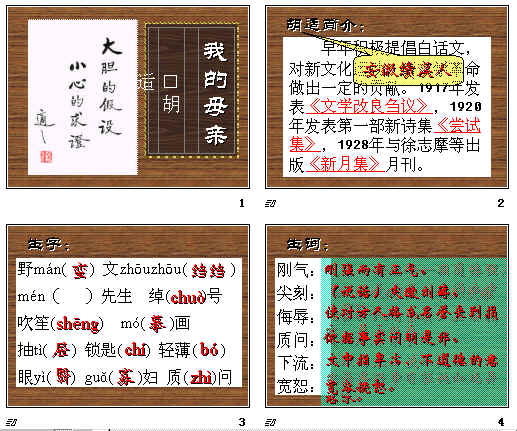 大胆的假设
小心的求證
適
我的母亲
□胡
适
1
胡适简介：
早年积极提倡白话文，
对新文化 安徽绩溪人 命
做出一定的贡献。1917年发
表《文学改良刍议》，1920
年发表第一部新诗集《尝试
集》，1928年与徐志摩等出
版《新月集》月刊。
2
生字：
野mán( 蛮 ) 文zhōuzhōu( 绉绉 )
mén（ ）先生 绰(chuò)号
吹笙(shēng) mó( 摹 )画
抽tì( 屉 ) 锁匙(chí) 轻薄(bó)
眼yì( 翳 ) guǎ( 寡 )妇 质(zhì)问
3
生词：
刚气：刚强而有正气、
尖刻：（说话）尖酸刻薄、
侮辱：使对方人格或名誉受到损
质问：依据事实问明是非、
下流：文中指卑污，不道德的意
宽恕：宽容饶恕。
4